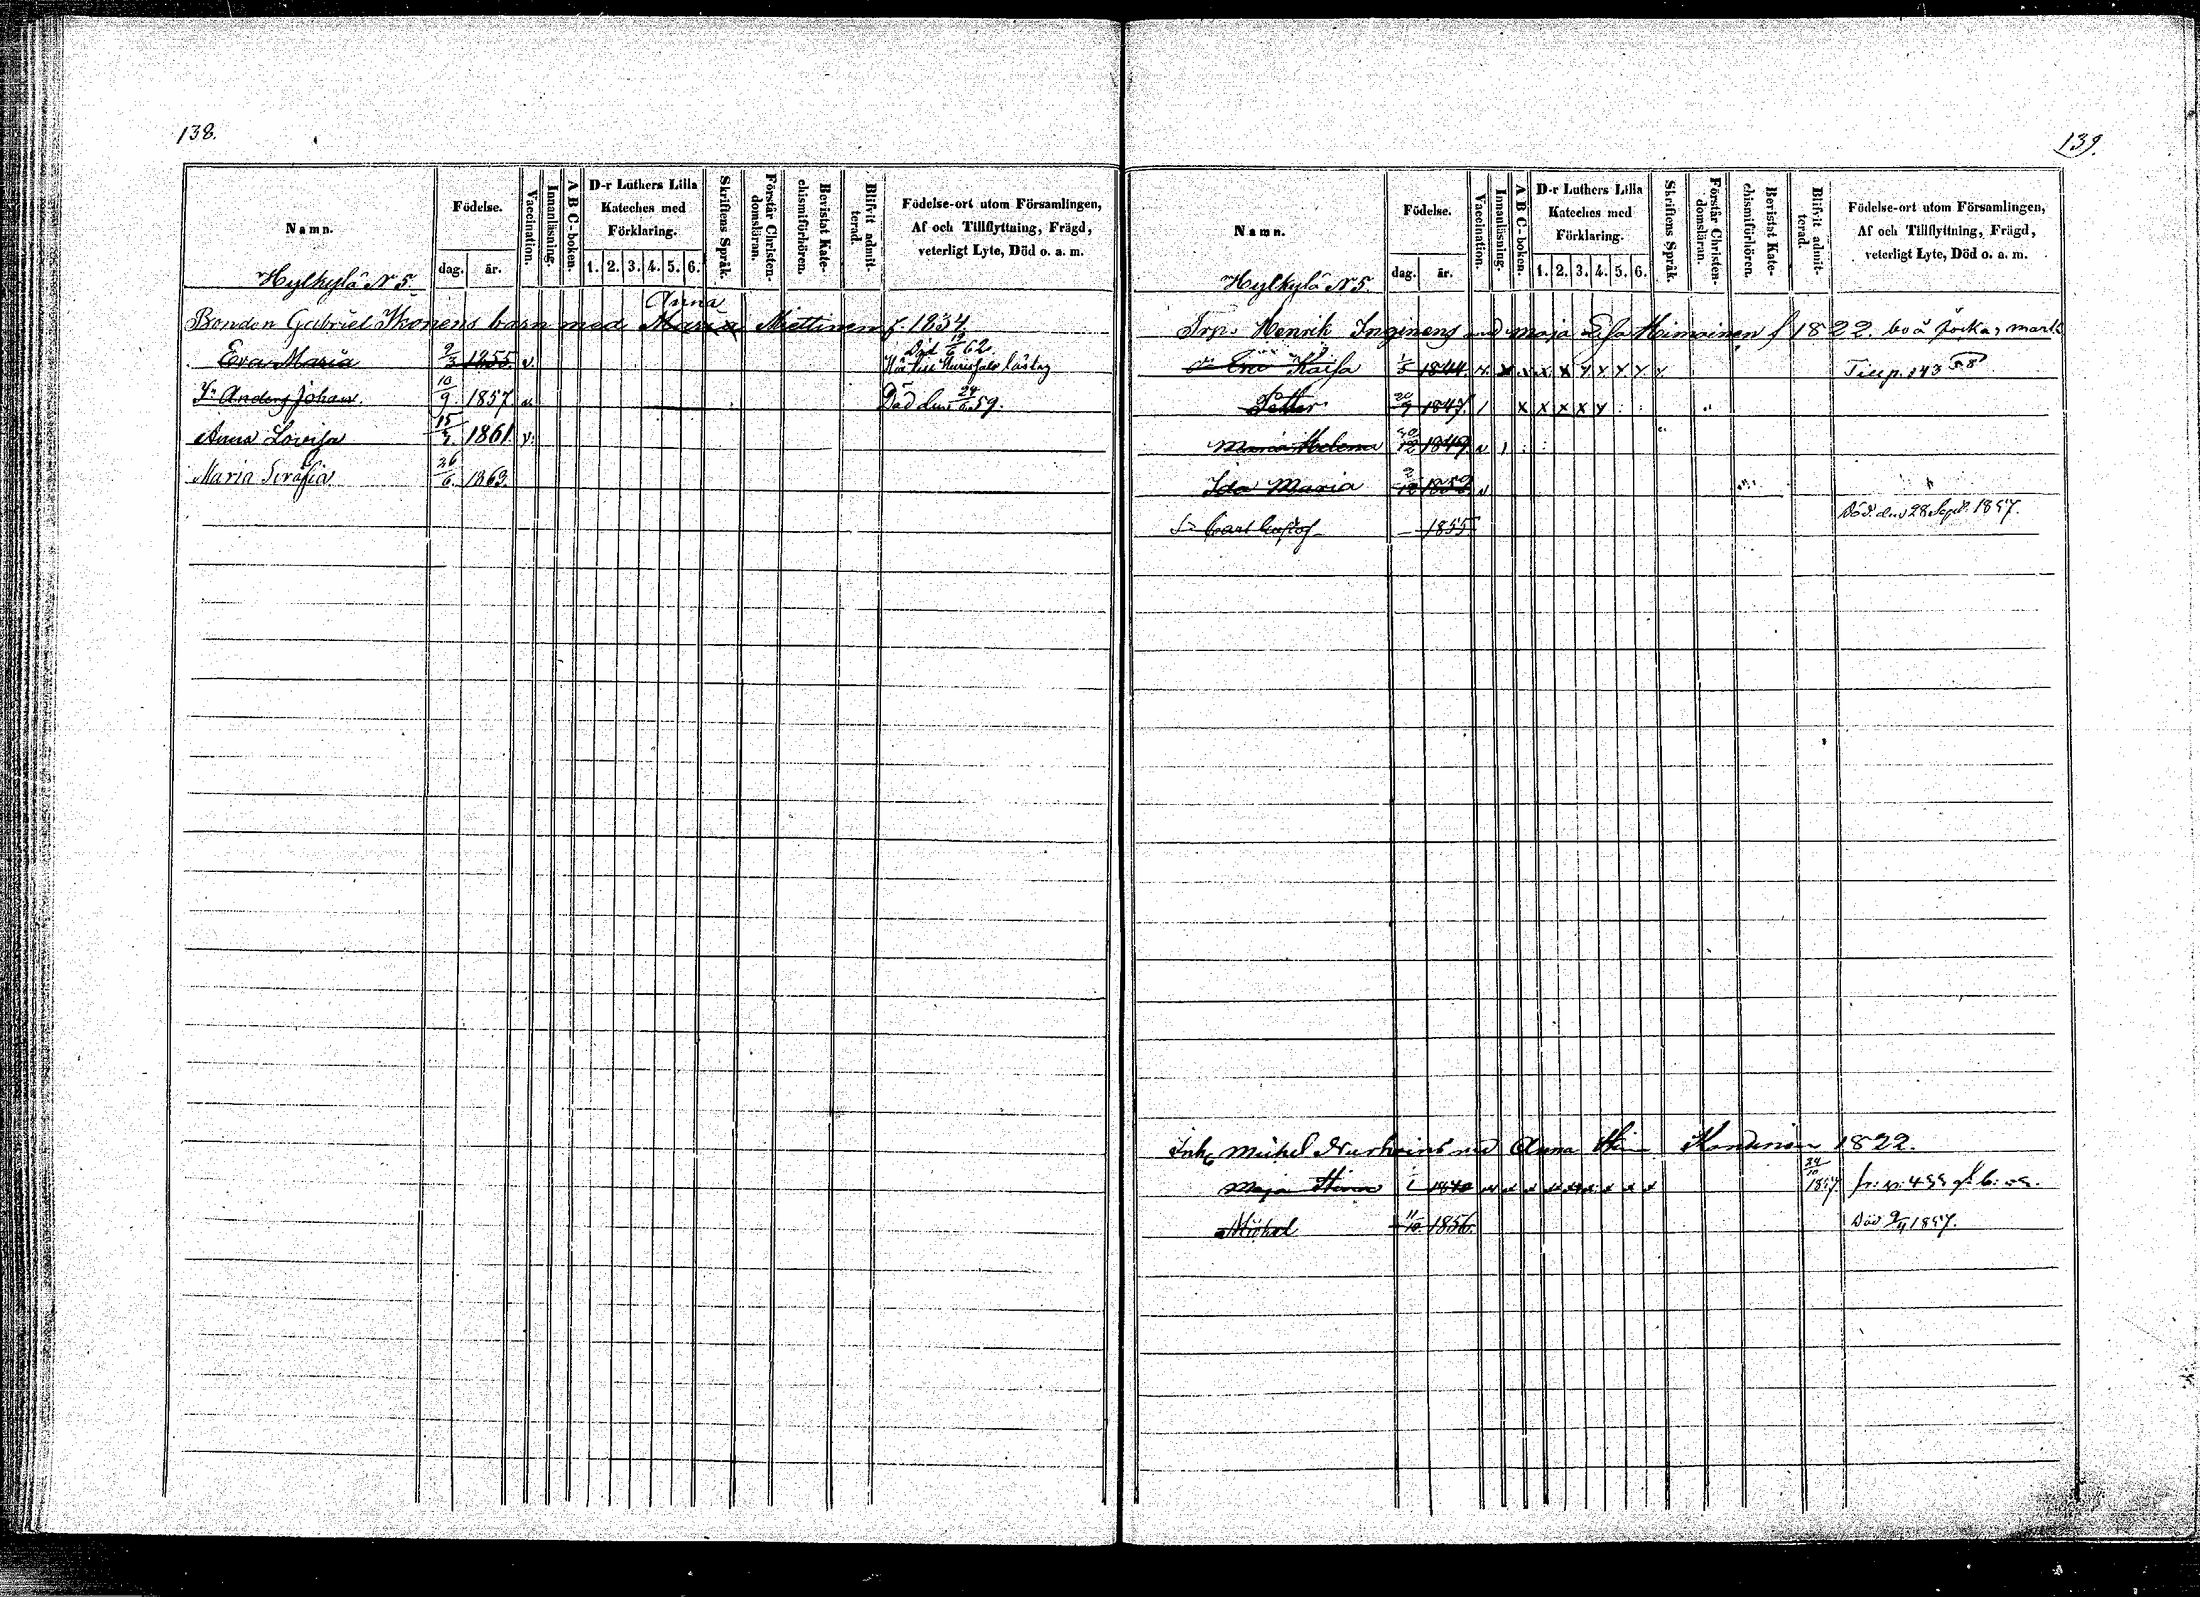 138.
Namn.
Födelse.
dag.
år.
Vaccination.
Innanläsning.
A B C-boken.
D-r Luthers Lilla
Kateches med
Förklaring.
1. 2. 3. 4. 5. 6.
Skriftens Språk.
Förstår Christen-
domsläran.
Bevistat Kate-
chismiförhören.
Blifvit admit-
terad.
Födelse-ort utom Församlingen,
Af och Tillflyttning, Frägd,
veterligt Lyte, Död o. a. m.
Hylkylä N 5.
Anna
Bonden Gabriel Ikonens barn med Maria Miettinen f. 1834
Död 19/6 62.
Eva Maria 9/3 1855. v.
Anders Johan. 10/9. 1857 v Död den 24/5 59.
Anna Lovisa 15/2. 1861 v.
Maria Serafia 26/6. 1863.
139.
Namn.
Födelse.
dag.
år.
Vaccination.
Innanläsning.
A B C-boken.
D-r Luthers Lilla
Kateches med
Förklaring.
1. 2. 3. 4. 5. 6.
Skriftens Språk.
Förstår Christen-
domsläran.
Bevistat Kate-
chismiförhören.
Blifvit admit-
terad.
Födelse-ort utom Församlingen,
Af och Tillflyttning, Frägd,
veterligt Lyte, Död o. a. m.
Hylkylä N 5.
Trp. Henrik Inginens med Maja Lisa Heimoinen f 1822. bo å mark
Kaisa 1/5 1844. x x x x y y y y y p. 143
Petter 30/9 1847. / x x x x y
Maria Helena 30/12 1849 v
Ida Maria 1852 v
Död. den 28 Sept. 1857.
Carl Gustof 1855
Inh. Michel med Anna 1822.
Maja Stina 1840 24/10 1857
Michel 11/10. 1856. Död 9/4 1857.